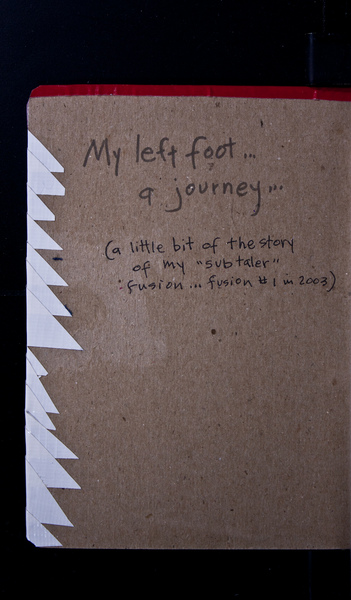 My left foot...
a journey...
(a little bit of the story
of my "subtaler"
: fusion... fusion #1 in 2003)